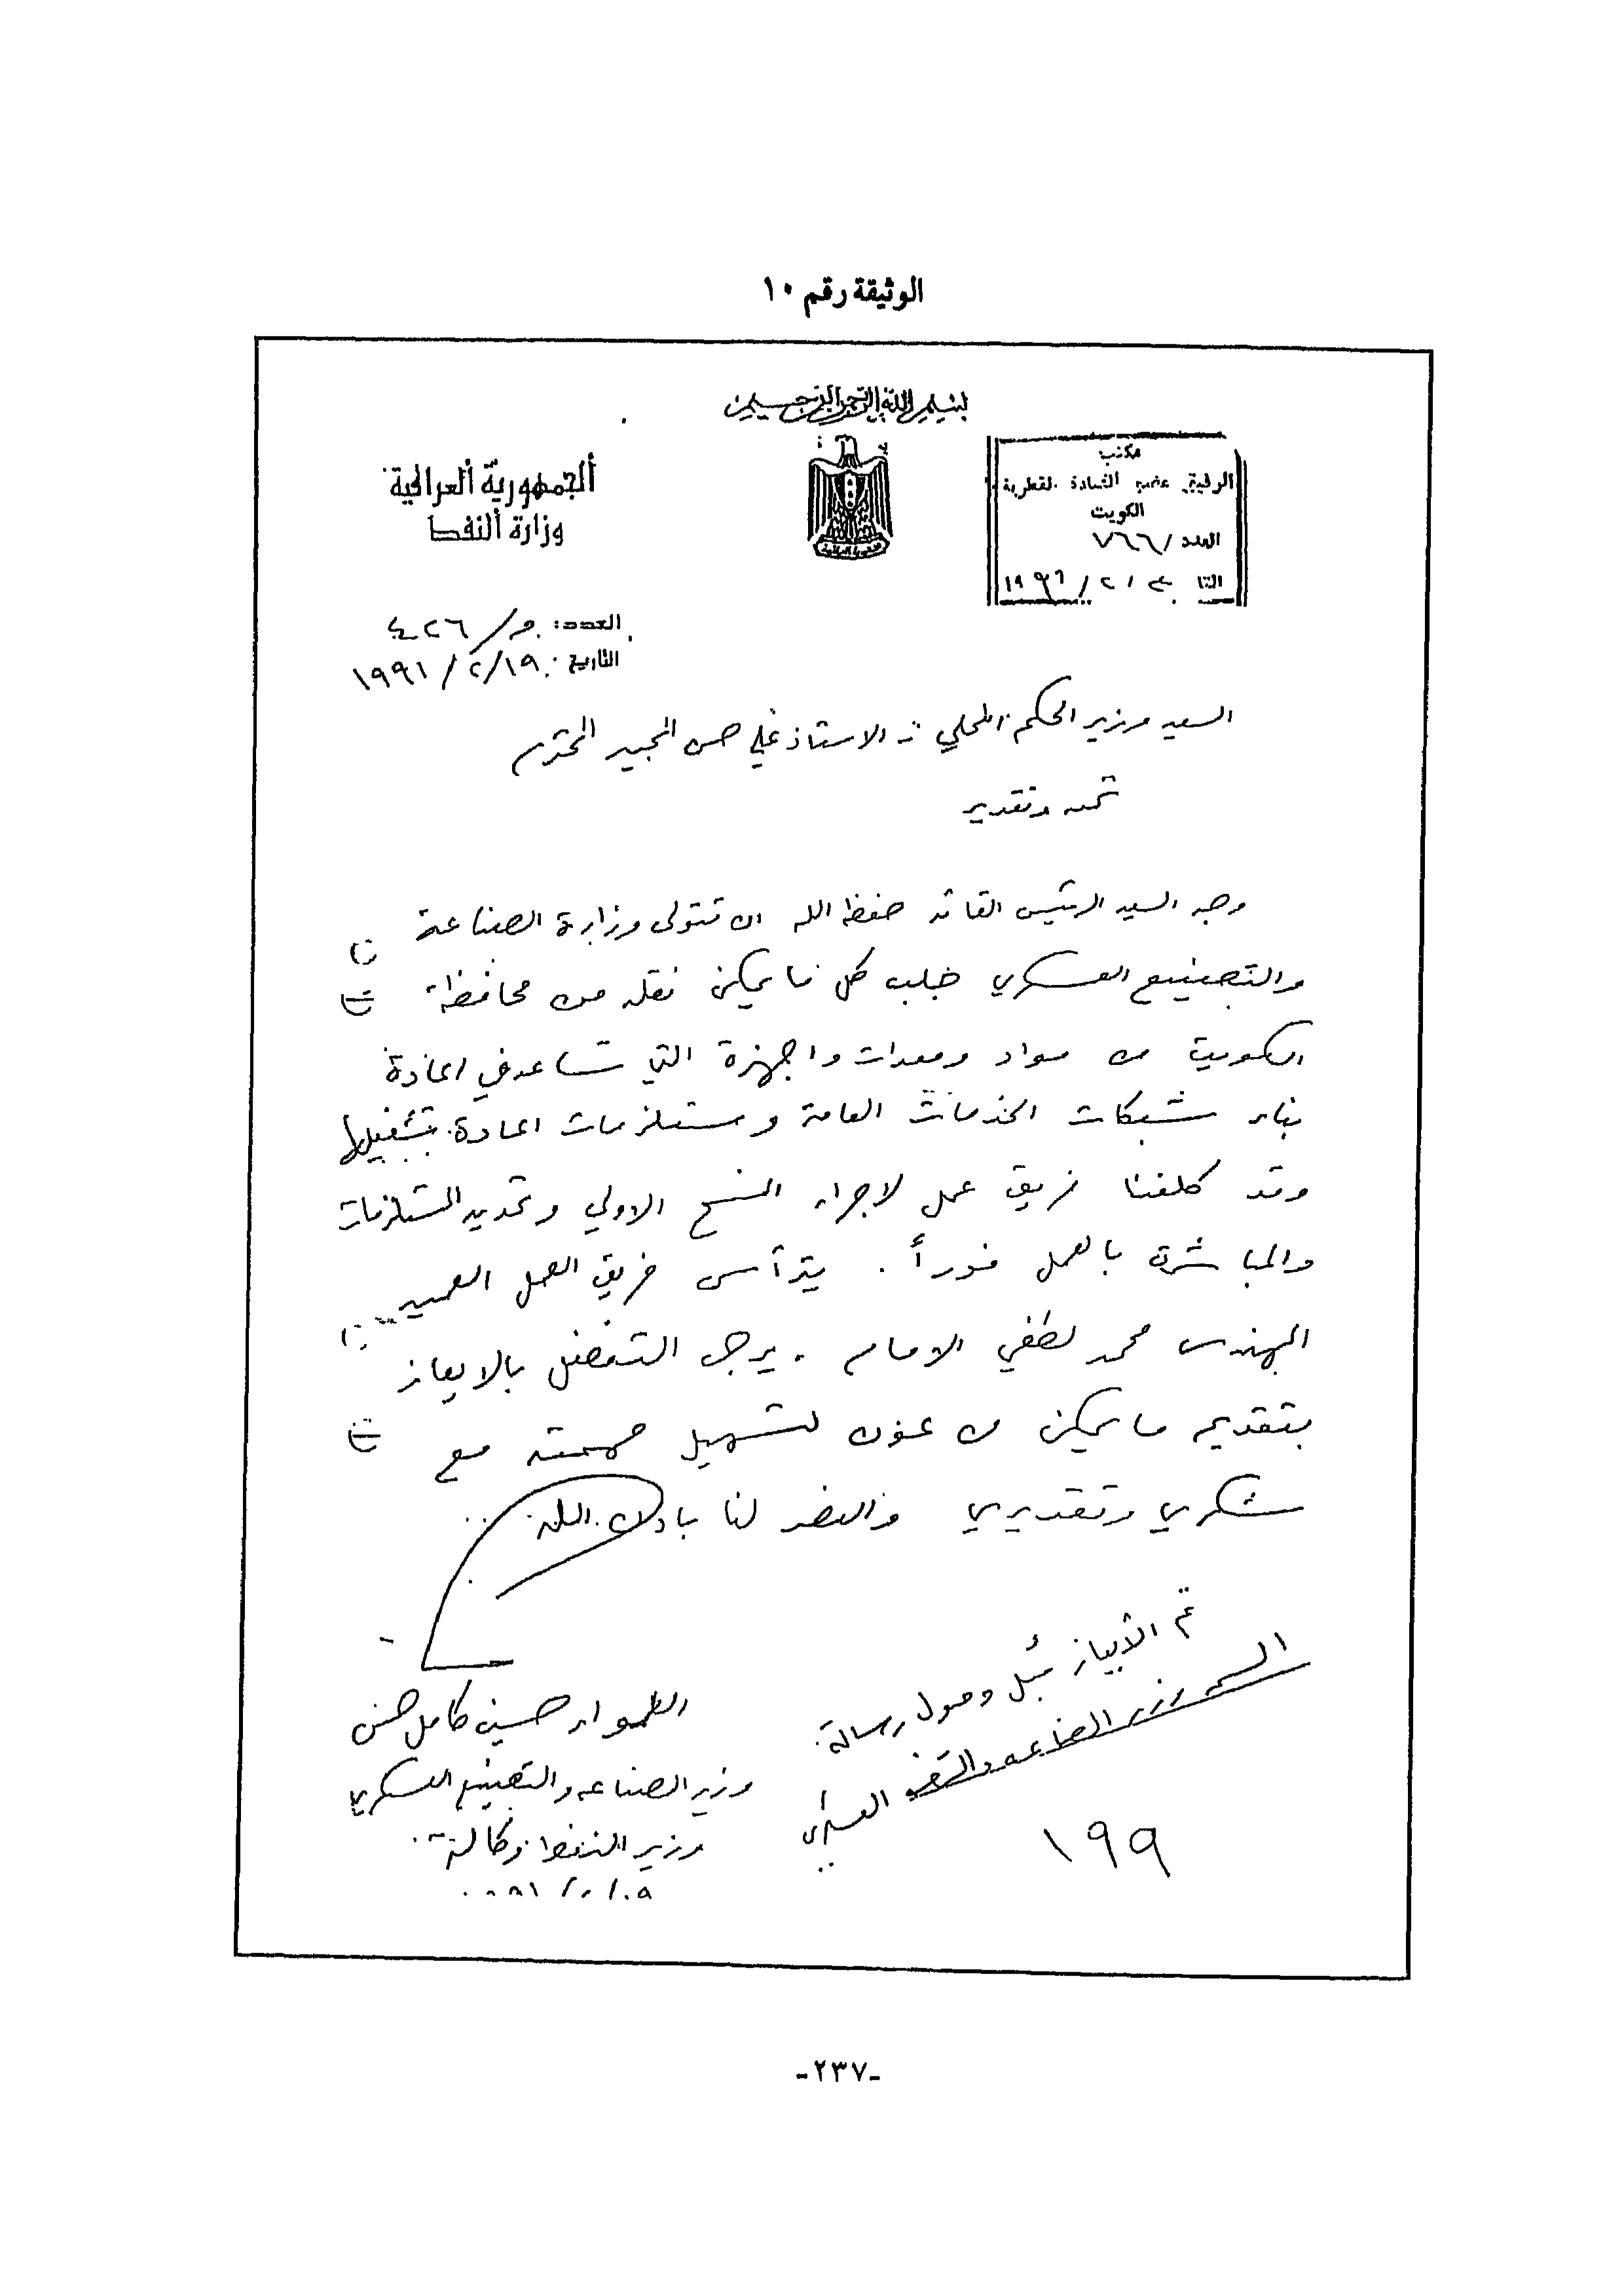 الوثيقة رقم ١٠
بسم الله الرحمن الرحيم
الجمهورية العراقية
وزارة النفط
مكتب
الرفيق عضو القيادة القطرية
الكويت
العدد / ٧٦٦
العدد: م / ٤٢٦
التاريخ: ١٩ / ٢ / ١٩٩١
السيد وزير الحكم المحلي : الاستاذ علي حسن المجيد المحترم
تحية وتقدير
وجه السيد الرئيس القائد حفظه الله ان تتولى وزارة الصناعة
والتصنيع العسكري جلب كل ما يمكن نقله من محافظة
الكويت من مواد ومعدات واجهزة التي تساعد في اعادة
بناء شبكات الخدمات العامة ومستلزمات اعادة تشغيلها
وقد كلفنا فريق عمل لاجراء المسح الاولي وتحديد المستلزمات
والمباشرة بالعمل فوراً . يترأس فريق العمل العميد
المهندس محمد لطفي الامام . يرجى التفضل بالايعاز
بتقديم ما يمكن من عون لتسهيل مهمته مع
شكري وتقديري والنصر لنا باذن الله ..
تم الأيعاز قبل وصول رسالة
السيد وزير الصناعة والتصنيع العسكري
حسين كامل حسن
وزير الصناعة والتصنيع العسكري
وزير النفط وكالة
١٩٩
-٢٣٧-